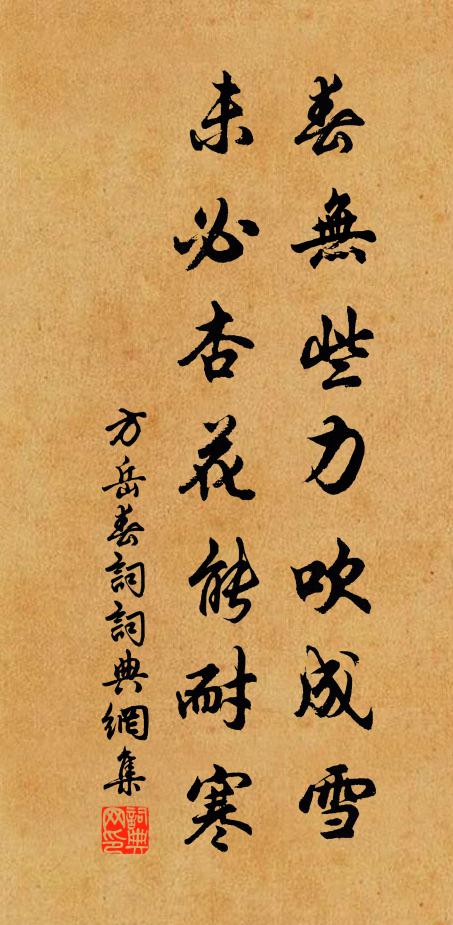 春無些力吹成雪
未必杏花能耐寒
方岳春詞詞典網集
詞典網印